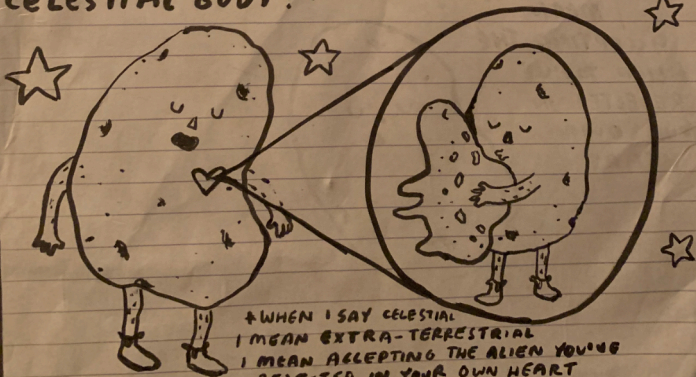 CELESTIAL BODY.
*WHEN I SAY CELESTIAL
I MEAN EXTRA-TERRESTRIAL
I MEAN ACCEPTING THE ALIEN YOU'VE
REJECTED IN YOUR OWN HEART